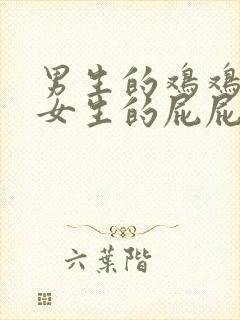 男生的鸡鸡
女生的屁屁
六葉階